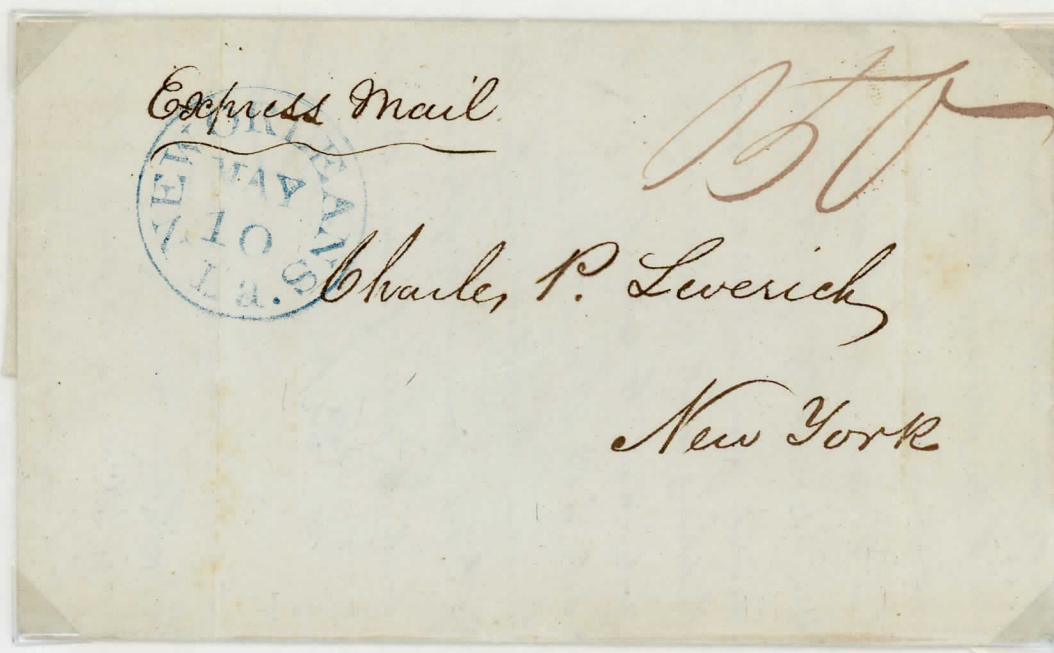 Express Mail
NEW ORLEANS
MAY
10
La.
Charles P. Leverich
New York